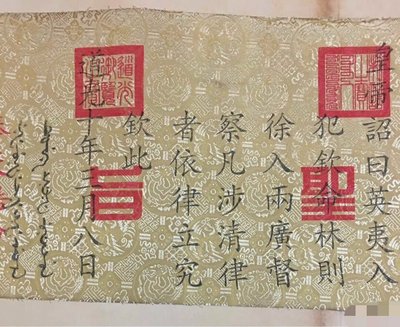 皇帝詔曰英夷入
犯欽命林則
徐入兩廣督
察凡涉清律
者依律立究
欽此
道光十年三月八日
聖旨